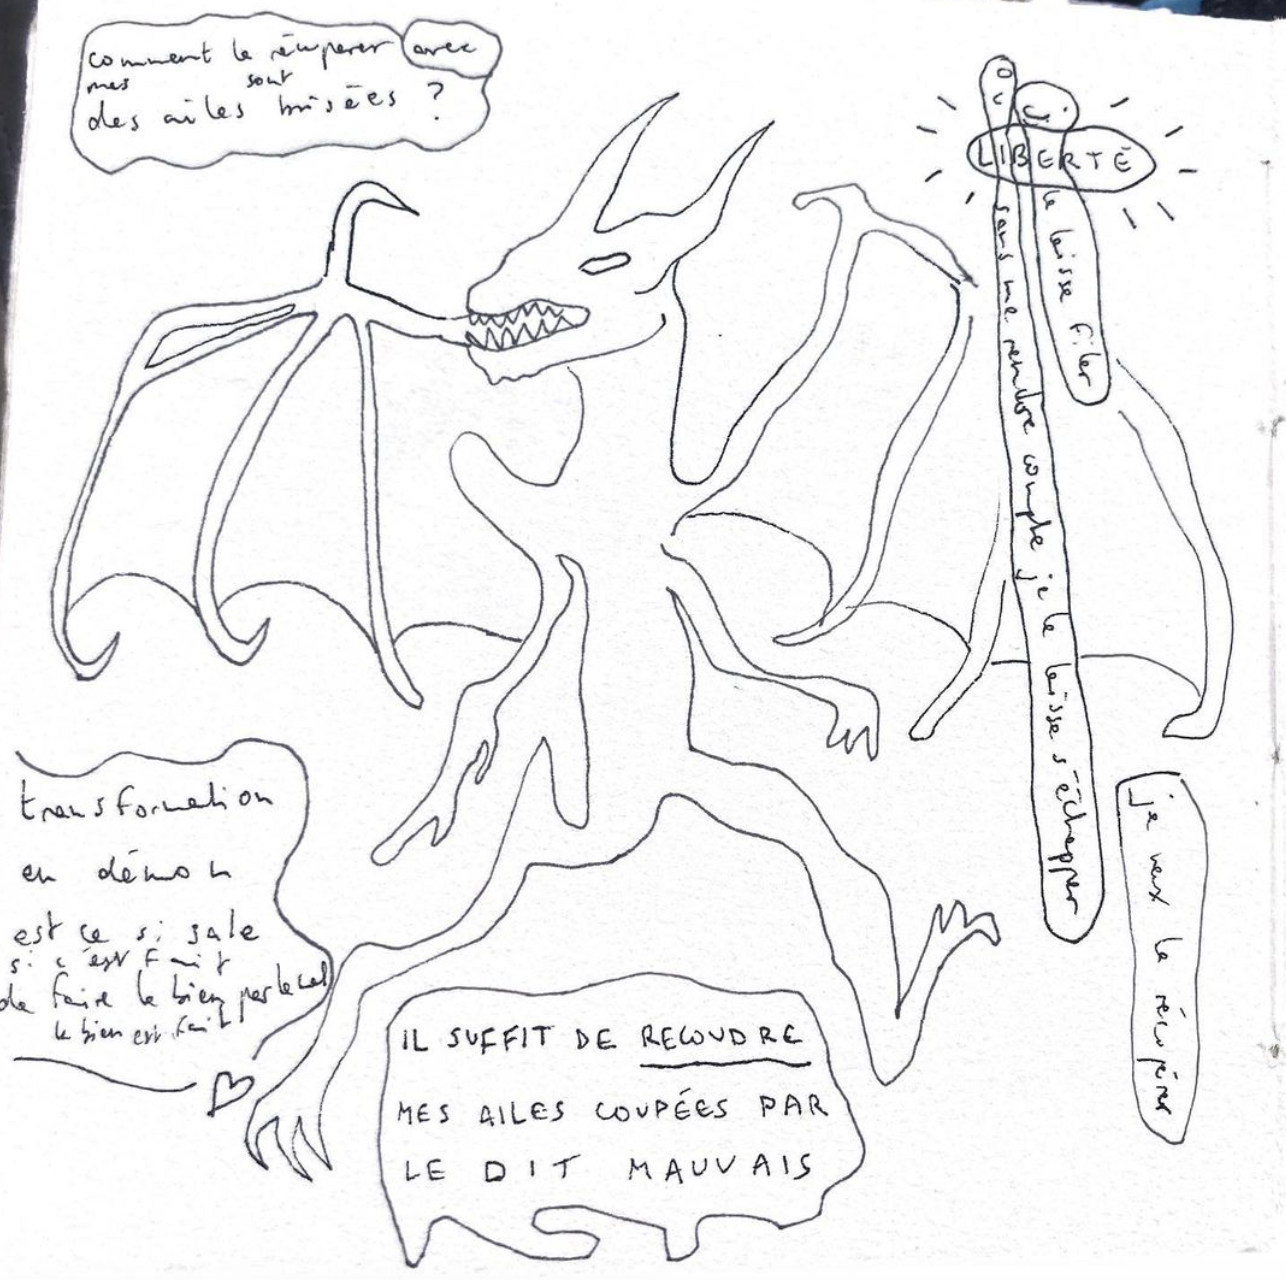 comment le récuperer avec
mes sont
des ailes brisées ?
où
si
LIBERTÉ
je le laisse filer
sans me rendre compte je le laisse s'échapper
je veux le récupérer
transformation
en démon
est ce si sale
si c'est fait
de faire le bien par le mal
le bien est fait
IL SUFFIT DE RECOUDRE
MES AILES COUPÉES PAR
LE DIT MAUVAIS